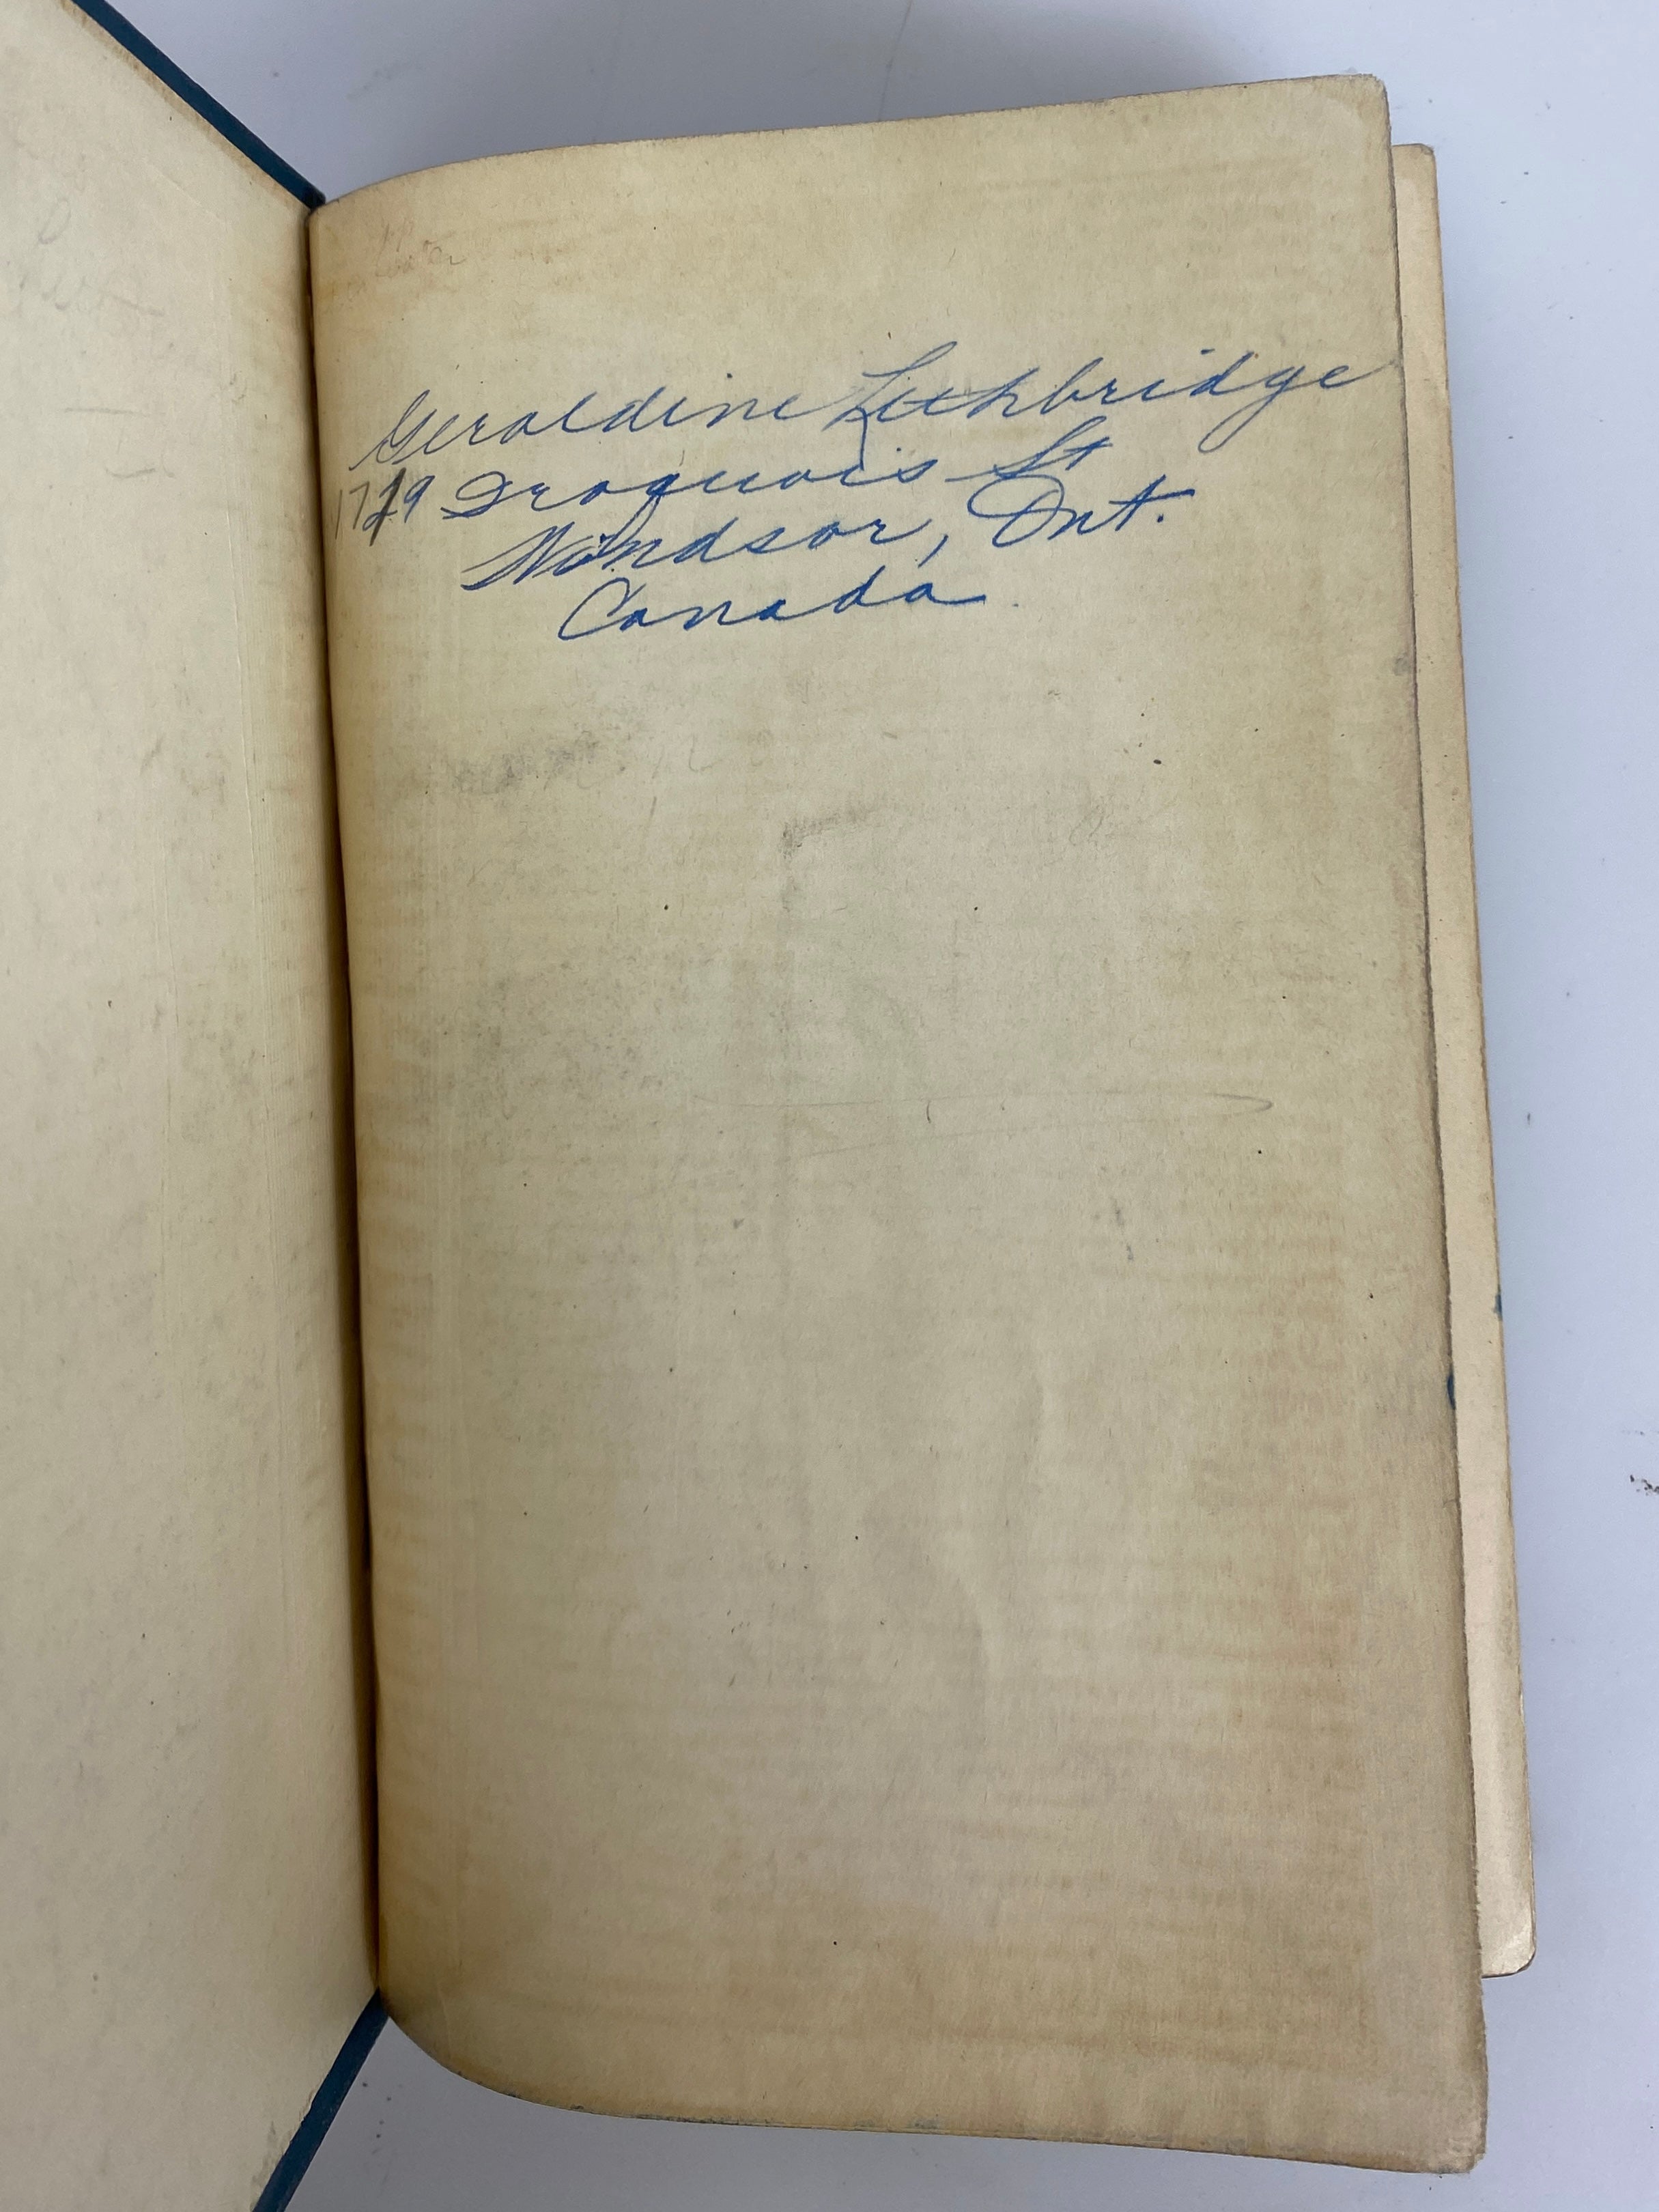 Geraldine Lethbridge
1719 Iroquois St
Windsor, Ont.
Canada